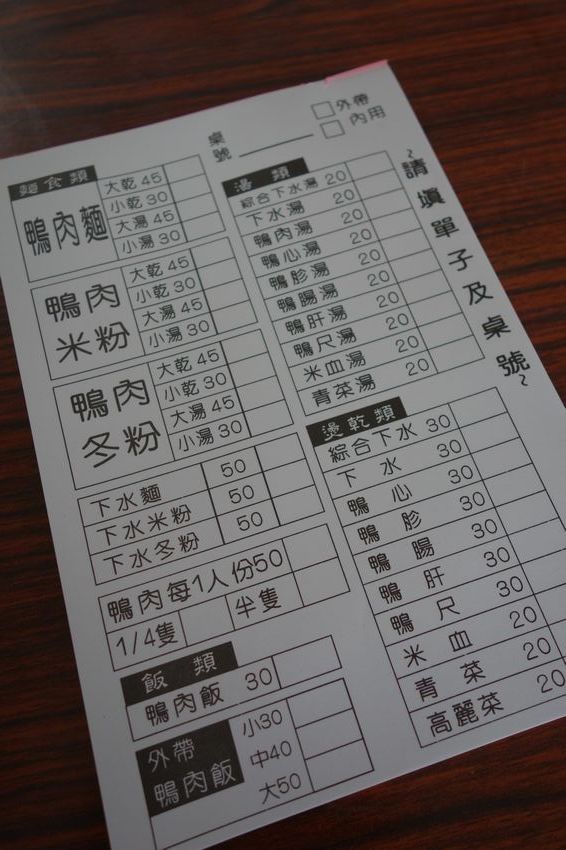 桌號
外帶
內用
~請填單子及桌號~
麵食類
鴨肉麵
大乾 45
小乾 30
大湯 45
小湯 30
鴨肉米粉
大乾 45
小乾 30
大湯 45
小湯 30
鴨肉冬粉
大乾 45
小乾 30
大湯 45
小湯 30
下水麵 50
下水米粉 50
下水冬粉 50
鴨肉每1人份50
1/4隻 半隻
飯類
鴨肉飯 30
外帶鴨肉飯
小30
中40
大50
湯類
綜合下水湯 20
下水湯 20
鴨肉湯 20
鴨心湯 20
鴨胗湯 20
鴨腸湯 20
鴨肝湯 20
鴨尺湯 20
米血湯 20
青菜湯 20
燙乾類
綜合下水 30
下水 30
鴨心 30
鴨胗 30
鴨腸 30
鴨肝 30
鴨尺 30
米血 20
青菜 20
高麗菜 20